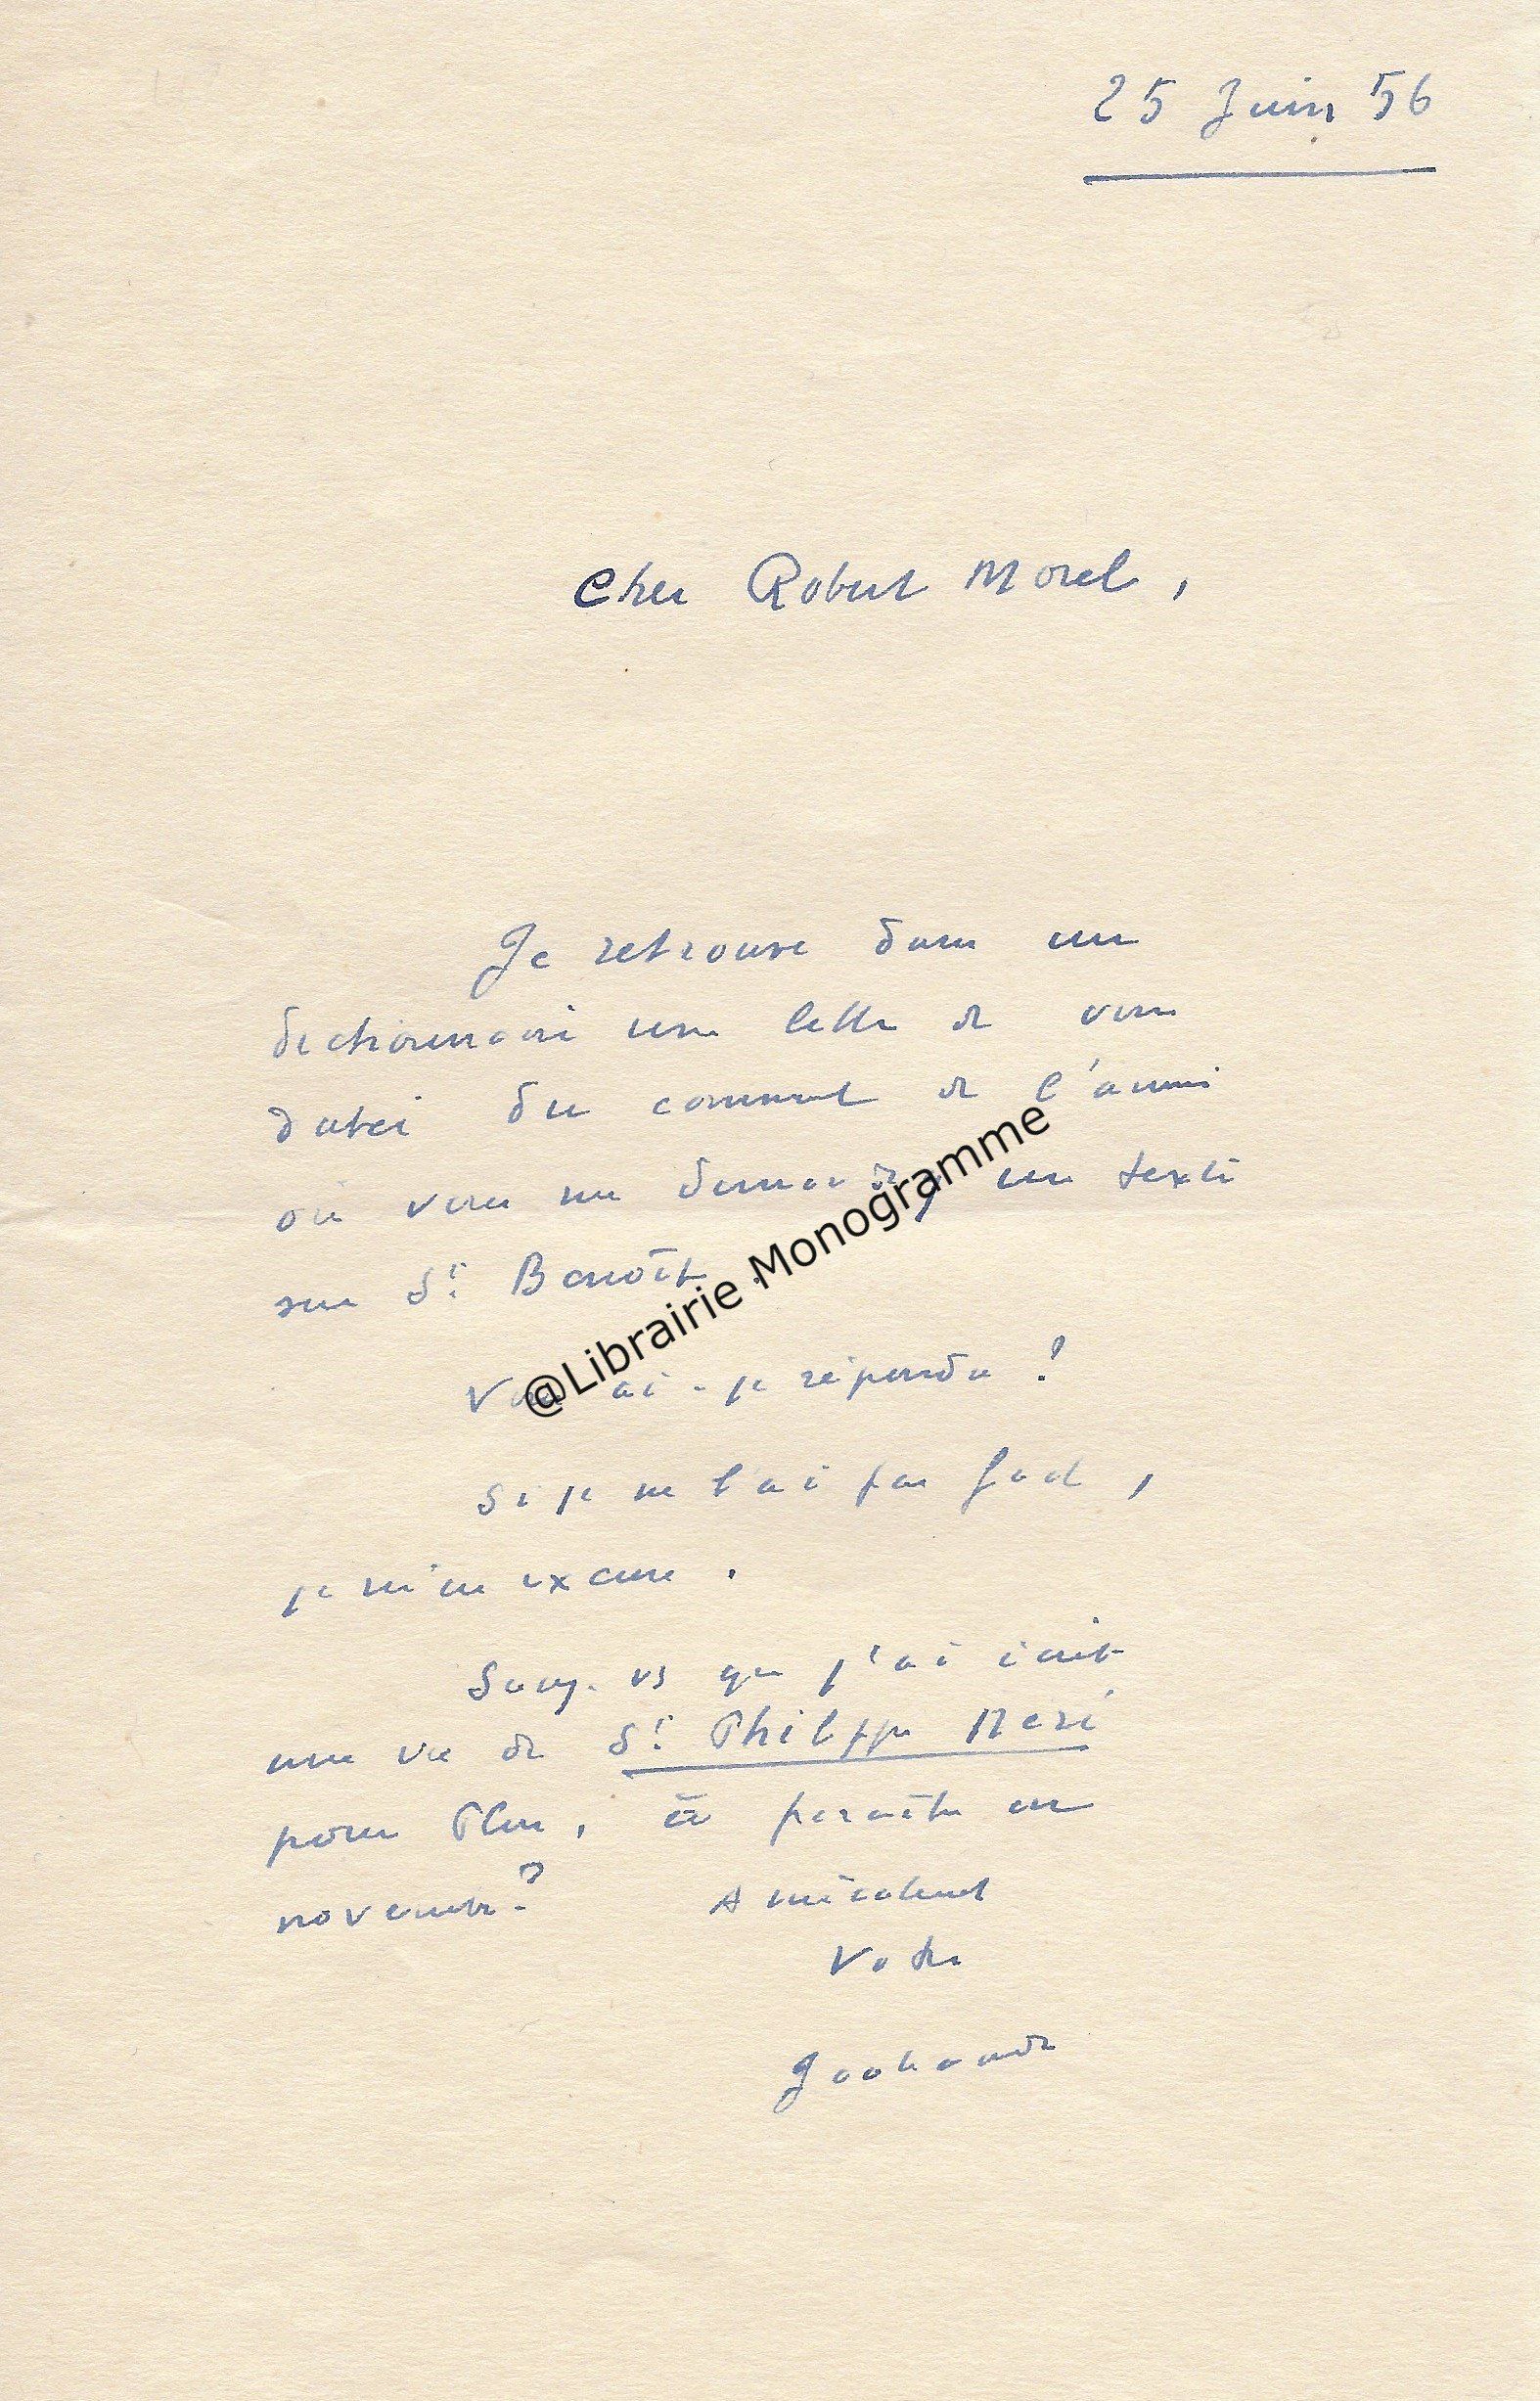 25 Juin 56
Cher Robert Morel,
Je retrouve dans un
dictionnaire une lettre de vous
datée du commencement de l'année
où vous me demandez un texte
sur St Benoît.
@Librairie Monogramme
Vous ai-je répondu ?
Si je ne l'ai pas fait,
je m'en excuse.
vs que j'ai écrit
une vie de St Philippe Neri
pour Plon, à paraître en
novembre ?
Amicalement
Votre
Jouhandeau